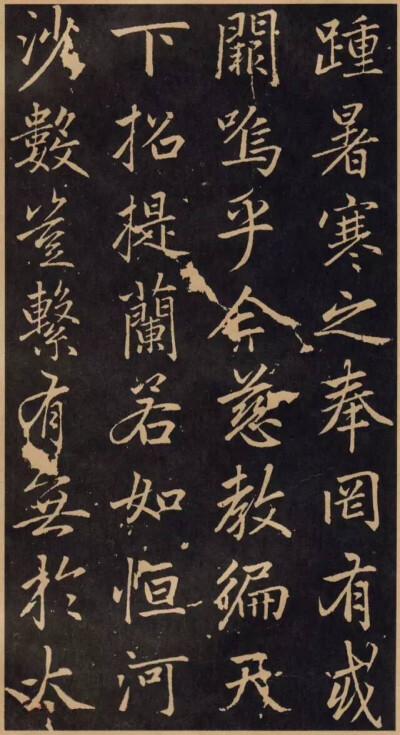 踵暑寒之奉罔有或
闕嗚乎今慈教徧天
下招提蘭若如恒河
沙數豈繫有無於太